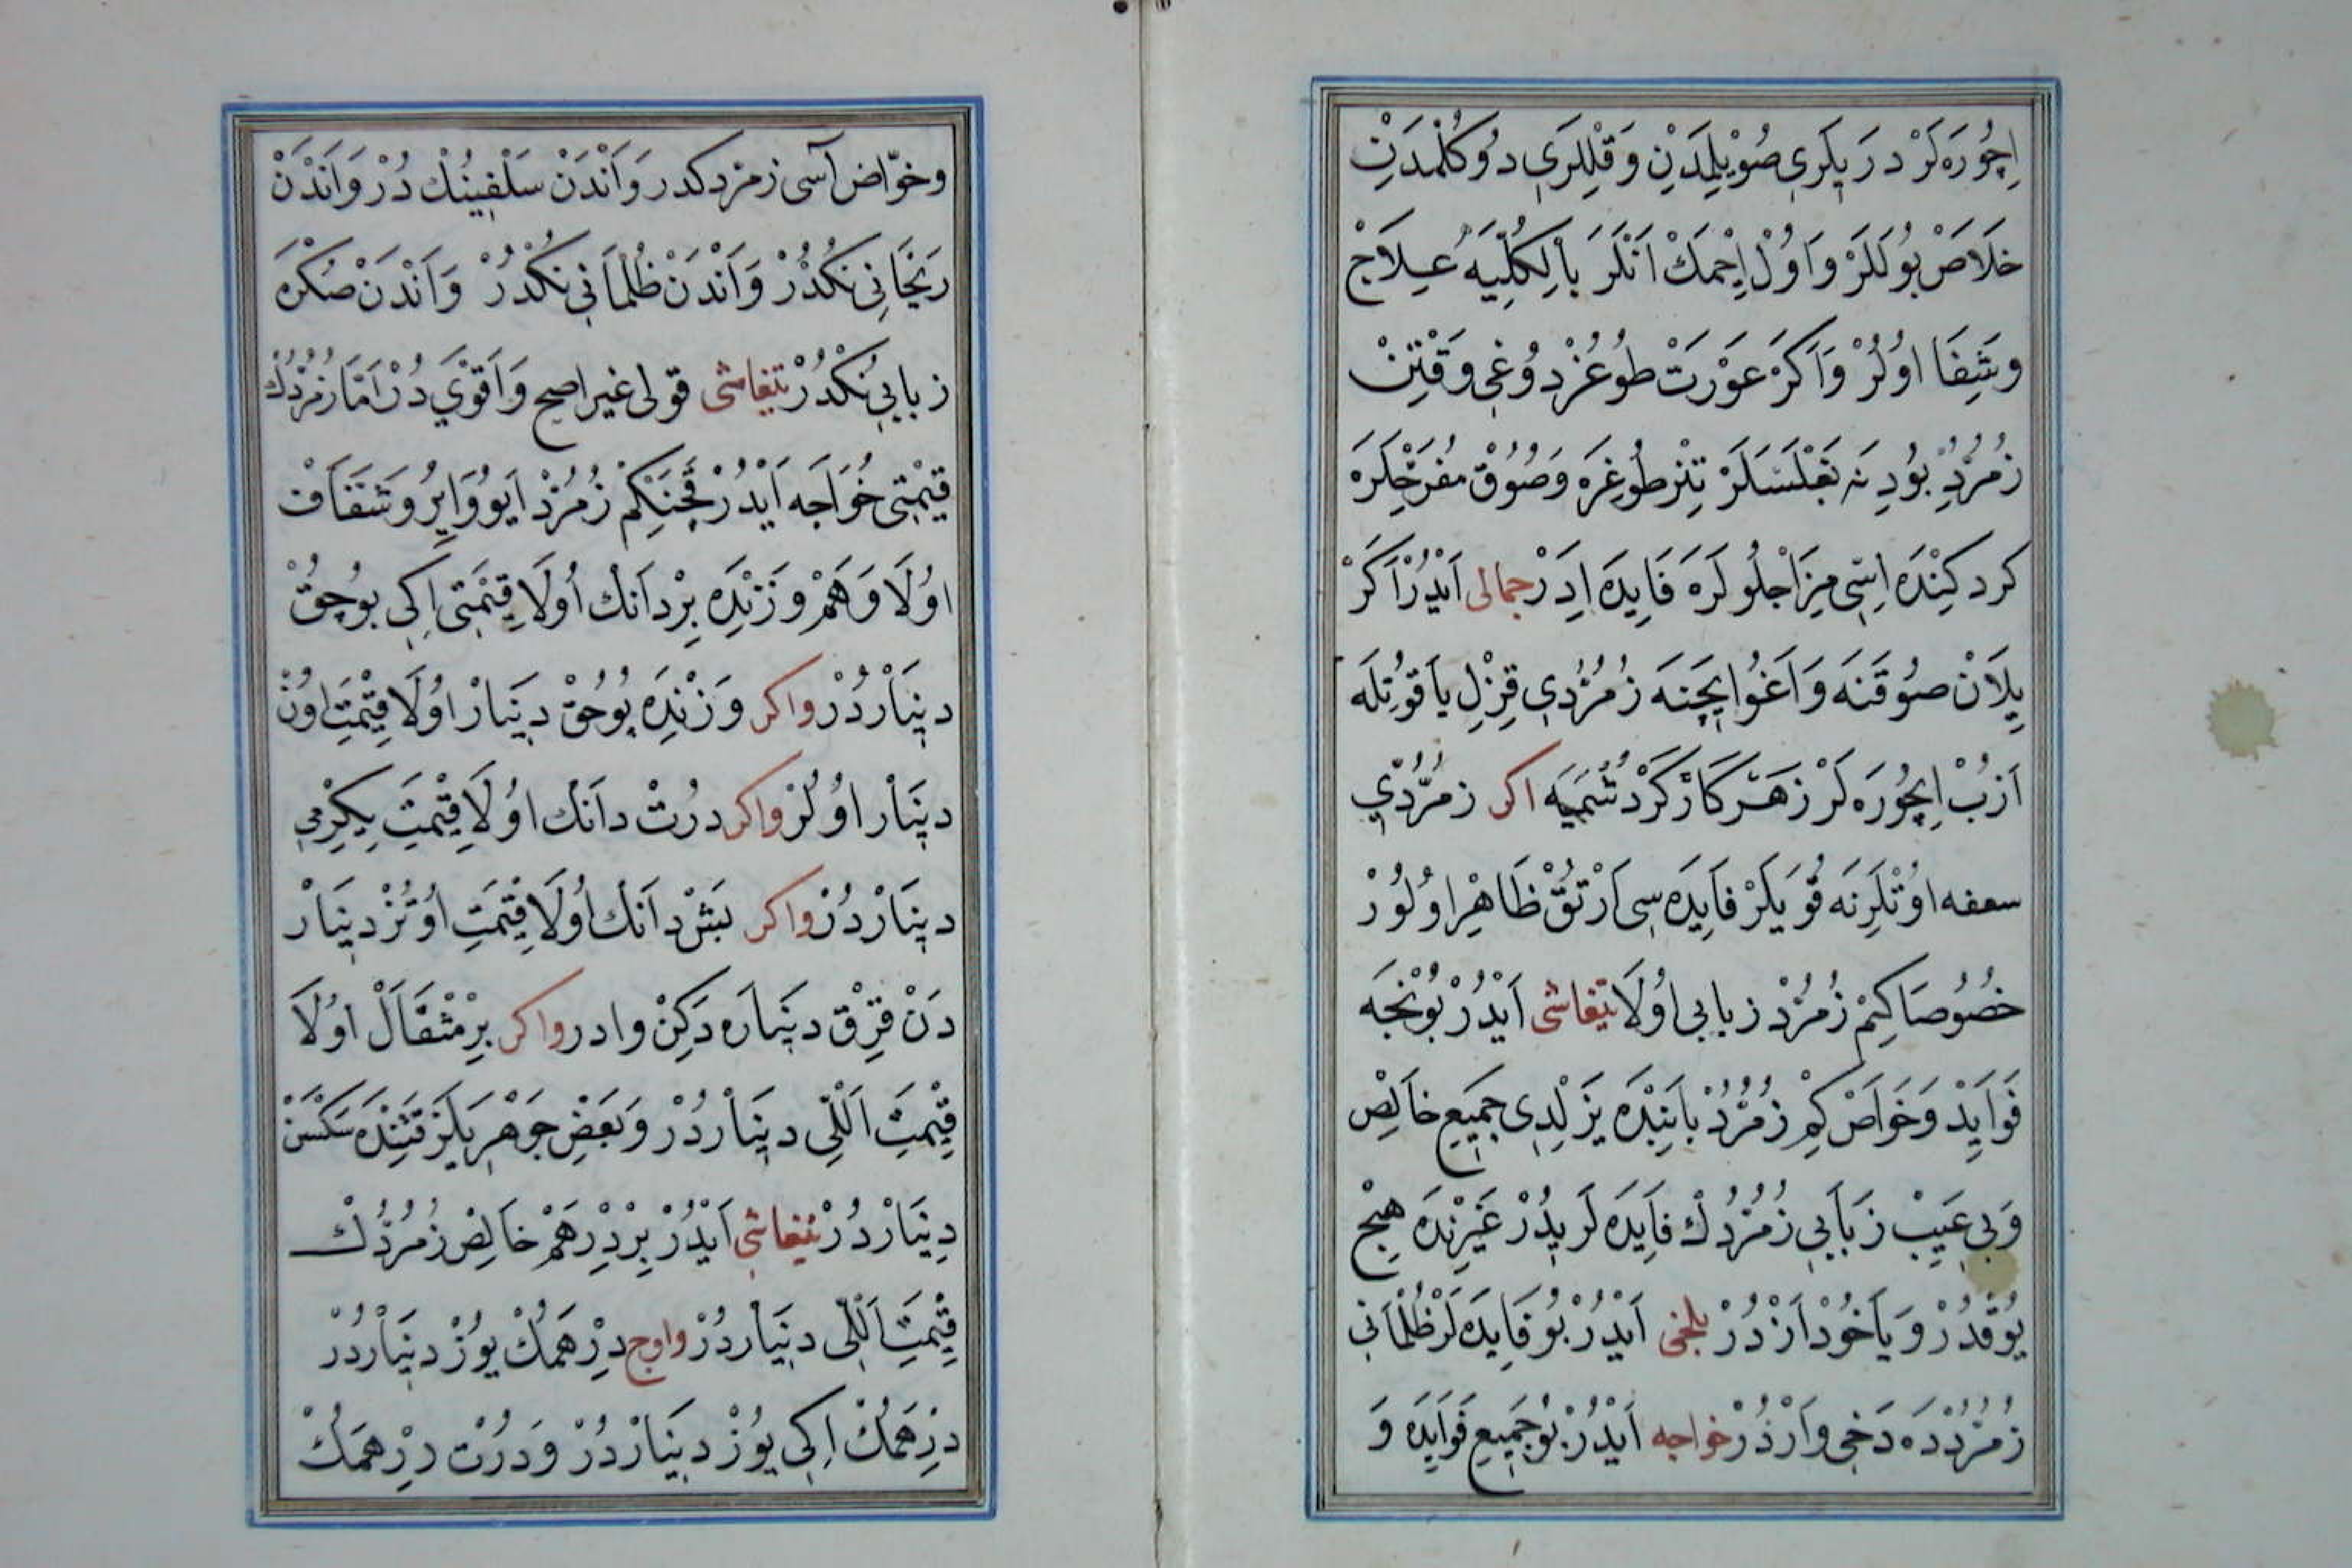 اِچُورَه لَرْ دریلَرِی صُویِلمَدَنْ وَقْلِلرَی دوُكُلْمَدَنْ
خَلَاصْ بُولَلَرْ وَاوُلْ اِحْمَكْ اَنْلَرَ بِالكُلِّيَه عِلَاجْ
وَشِفَا اوُلُرْ وَاَكَرْ عَوْرَتْ طُوغُرْدُوغِی وَقْتِنْ
زُمُرّدِ بُودِنَه بَغْلَسَلَرْ تِزْ طُوغِرَه وَصُوُقْ مُفَرّحْلَرَه
كرد كِنْدَه اِسّی مِزَاجْلُولَرَه فَايِدَه اِدَرْ جمالی اَيْدُرْ اَكَرْ
يِلَانْ صُوقَنَه وَاَغُو اِچِنَه زُمُرّدِی قِزِلِ يَاقُوتْلَه
اَزُبْ اِچُورَه لَرْ زَهَرْ كَارْكَرْ دُشْمَيَه اكر زمُرُّدِی
سعفه اوُتْلَرِنَه قُويَلَرْ فَايِدَه سِی اَرْتُقْ ظَاهِرْ اوُلُورْ
خُصُوصَا كِمْ زُمُرّدْ زبابی اوُلَا تیفاشی اَيْدُرْ بُونْجَه
فَوَايِدْ وَخَوَاصْ كِمْ زُمُرّدْ بَابِنِدَه يَزِلْدِی جَمِيعِ خَالِصْ
وَبِی عَيبْ زَبَابِی زُمُرّدُكْ فَايِدَه لَرِيدُرْ غَيْرِنْدَه هِيچْ
يُوقْدُرْ وَيَاخُودْ اَزْدُرْ بلخی اَيْدُرْ بُو فَايِدَه لَرْ ظُلْمَانی
زُمُرّدْدَه دَخِی وَارْدُرْ خواجه اَيْدُرْ بُو جَمِيعِ فَوَايِدَ وَ
وخوّاض آسی زمرّد كدر وَاَنْدَنْ سَلْقِينُكْ دُرْ وَاَنْدَنْ
رَيْحَانِی نكُدُرْ وَاَنْدَنْ ظُلْمَانِی نكُدُرْ وَاَنْدَنْ صُكْرَه
زبابِی نُكْدُرْ تیفاشی قولی غیر اصح وَاَقْوَی دُرْ اَمَّا زمُرّدُكْ
قِيْمَتِی خُوَاجَه اَيْدُرْ قَچَنْكِمْ زُمُرّدْ اَيُو وَاِيرُو شَفَّافْ
اوُلَا وَهَمْ وَزَنِدَه بِرْدَانْك اوُلَا قِيْمَتِی اِكِی بُوچُقْ
دِينَارْدُرْ واكر وَزْنِدَه بُوچُقْ دِينَارْ اوُلَا قِيْمَتِ اوُنْ
دِينَارْ اوُلُرْ واكر دُرْتْ دَانْك اوُلَا قِيْمَتِ يِكِرْمِی
دِينَارْدُرْ واكر بَشْ دَانْك اوُلَا قِيْمَتِ اوُتُزْ دِينَارْ
دَنْ قِرْقْ دِينَارَه دَكِنْ وادر واكر بِرْ مِثْقَالْ اوُلَا
قِيْمَتِ اَللّی دِينَارْدُرْ وَبَعْضِ جَوْهَرِيلَرْ قَتِنْدَه سَكْسَنْ
دِينَارْدُرْ تیفاشی اَيْدُرْ بِرْدِرْهَمْ خَالِصْ زُمُرّدُكْ
قِيْمَتِ اَللّی دِينَارْدُرْ واوچ دِرْهَمُكْ يُوزْ دِينَارْدُرْ
دِرْهَمُكْ اِكِی يُوزْ دِينَارْدُرْ وَدُرْتْ دِرْهَمُكْ